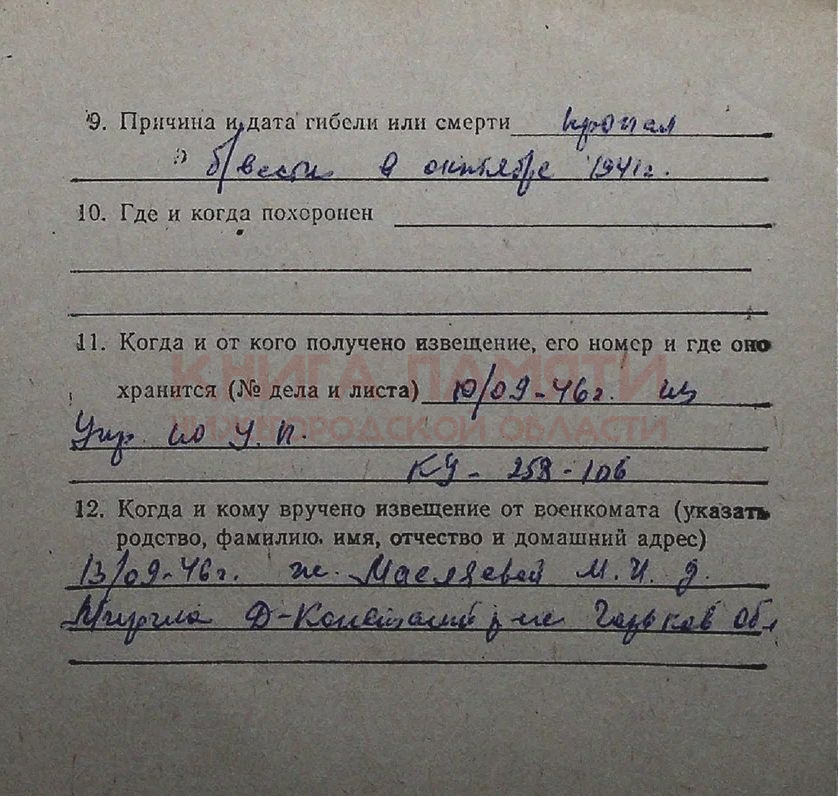 9. Причина и дата гибели или смерти пропал
б/вести в октябре 1941г.
10. Где и когда похоронен
11. Когда и от кого получено извещение, его номер и где оно
хранится (№ дела и листа) 10/09-46г. из
Упр по У.П.
КУ-258-106
12. Когда и кому вручено извещение от военкомата (указать
родство, фамилию, имя, отчество и домашний адрес)
13/09-46г. ж. Масляевой М.И. д.
Д-Констант р-не Горьков Обл
КНИГА ПАМЯТИ
НИЖЕГОРОДСКОЙ ОБЛАСТИ